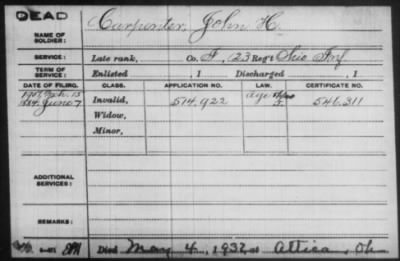 DEAD
NAME OF SOLDIER: Carpenter, John H.
SERVICE: Late rank, Co. F, 23 Reg't Ohio Inf
TERM OF SERVICE: Enlisted , 1 Discharged , 1
DATE OF FILING. CLASS. APPLICATION NO. LAW. CERTIFICATE NO.
15
June 7 Invalid, 514.922 Age 546.311
Widow,
Minor,
ADDITIONAL SERVICES:
REMARKS:
Died May 4, 1932 at Attica, Oh